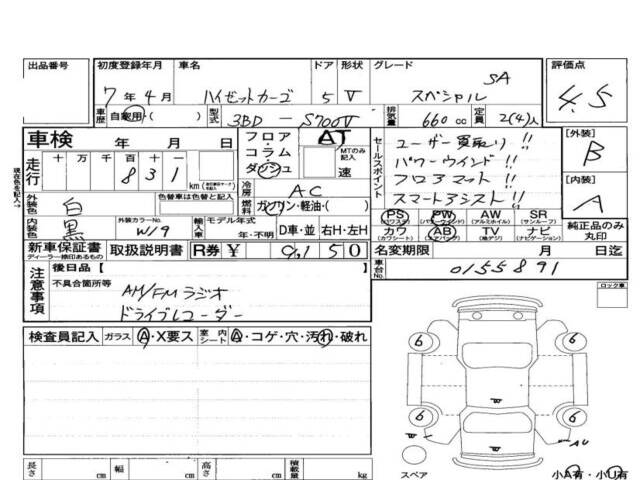 出品番号 初度登録年月 車名 ドア 形状 グレード 評価点
7年4月 ハイゼットカーゴ 5 V スペシャル SA 4.5
車歴 自家用・( ) 型式 3BD - S700V 排気量 660cc 定員 2(4)人
車検 年 月 日 フロア・コラム・ダッシュ AT MTのみ記入 速
セールスポイント
ユーザー買取り!!
パワーウインド!!
フロアマット!!
スマートアシスト!!
[外装] B
[内装] A
現在色を記入→
走行 十 万 千 百 十 一
8 3 1 km
冷房 AC
燃料 ガソリン・軽油・( )
外装色 白 色替車は色替と記入
内装色 黒 外装カラーNo. W19 輸入車 モデル年式 年・不明 D車・並 右H・左H
PS (パワステ) PW (パワーウインド) AW (アルミホイル) SR (サンルーフ)
カワ (カワシート) AB (エアバッグ) TV (地デジ) ナビ (ナビゲーション)
純正品のみ丸印
新車保証書 ディーラー捺印あるもの 取扱説明書 R券 ¥ 9,150
名変期限 月 日迄
車台No. 0155891
注意事項 後日品【
不具合箇所等
AM/FMラジオ
ドライブレコーダー
ロック車
検査員記入 ガラス A・X要ス 室内シート A・コゲ・穴・汚れ・破れ
6 6
6 6
W
W AU
スペア 小A有・小U有
長さ cm 幅 cm 高さ cm 積載量 kg